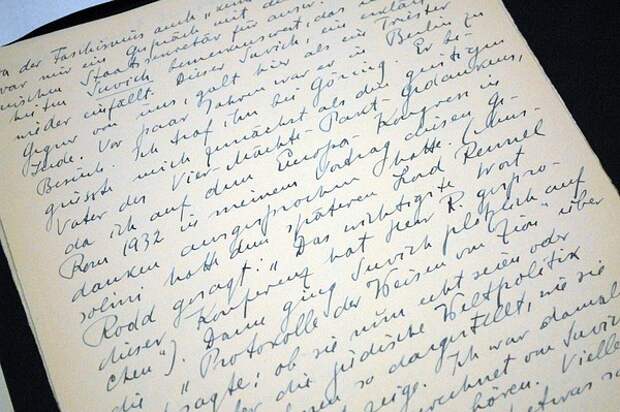 der Faschismus auch
war mir ein Gespräch mit dem
nischen Staatssekretär für ausw.
heiten Suvich bemerkenswert, das
wieder einfällt. Dieser Suvich, ein erklär
Gegner von uns, galt hier als ein Triester
Jude. Vor paar Jahren war er in Berlin zu
Besuch. Ich traf ihn bei Göring. Er be-
grüsste mich zunächst als den geistigen
Vater des Vier-Mächte-Pakt-Gedankens,
da ich auf dem Europa-Kongress in
Rom 1932 in meinem Vortrag diesen Ge-
danken ausgesprochen hatte. (Mus-
solini hatte dem späteren Lord Rennel
Rodd gesagt: "Das wichtigste Wort
dieser Konferenz hat Herr R. gespro-
chen"). Dann ging Suvich plötzlich auf
die "Protokolle der Weisen von Zion" über
sagte: ob sie nun echt seien oder
die jüdische Weltpolitik
so dargestellt, wie sie
zeige. Ich war damals
von Suvich
hören. Viell
etwas